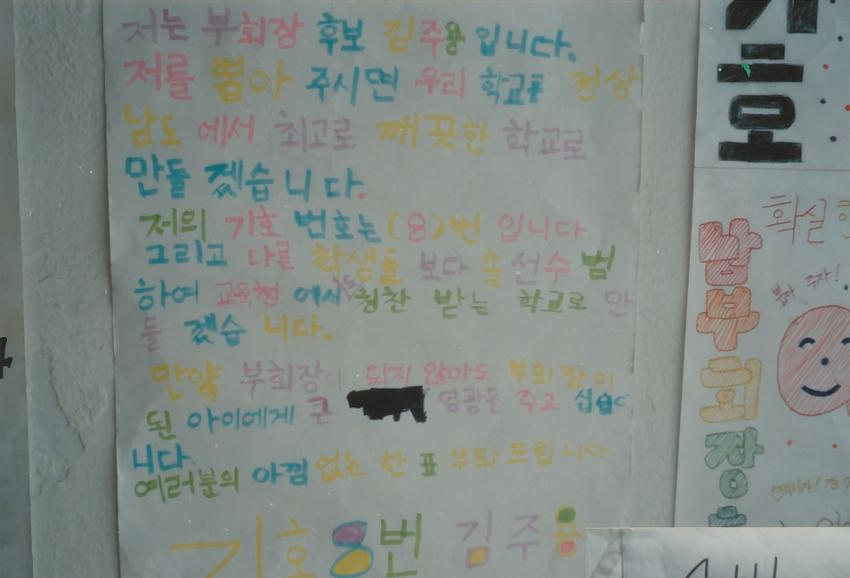 저는 부회장 후보 김주용 입니다.
저를 뽑아 주시면 우리 학교를 경상
남도 에서 최고로 깨끗한 학교로
만들 겠습니다.
저의 기호 번호는(8)번 입니다
그리고 다른 학생들 보다 솔선수범
하여 교육청 에서 칭찬 받는 학교로 만
들 겠습 니다.
만약 부회장이 되지 않아도 부회장이
된 아이에게 큰 영광을 주고 십습
니다
여러분의 아낌없는 한 표 부탁드립니다
기호8번 김주용
호
확실한
남부회장
뽑아 주자!